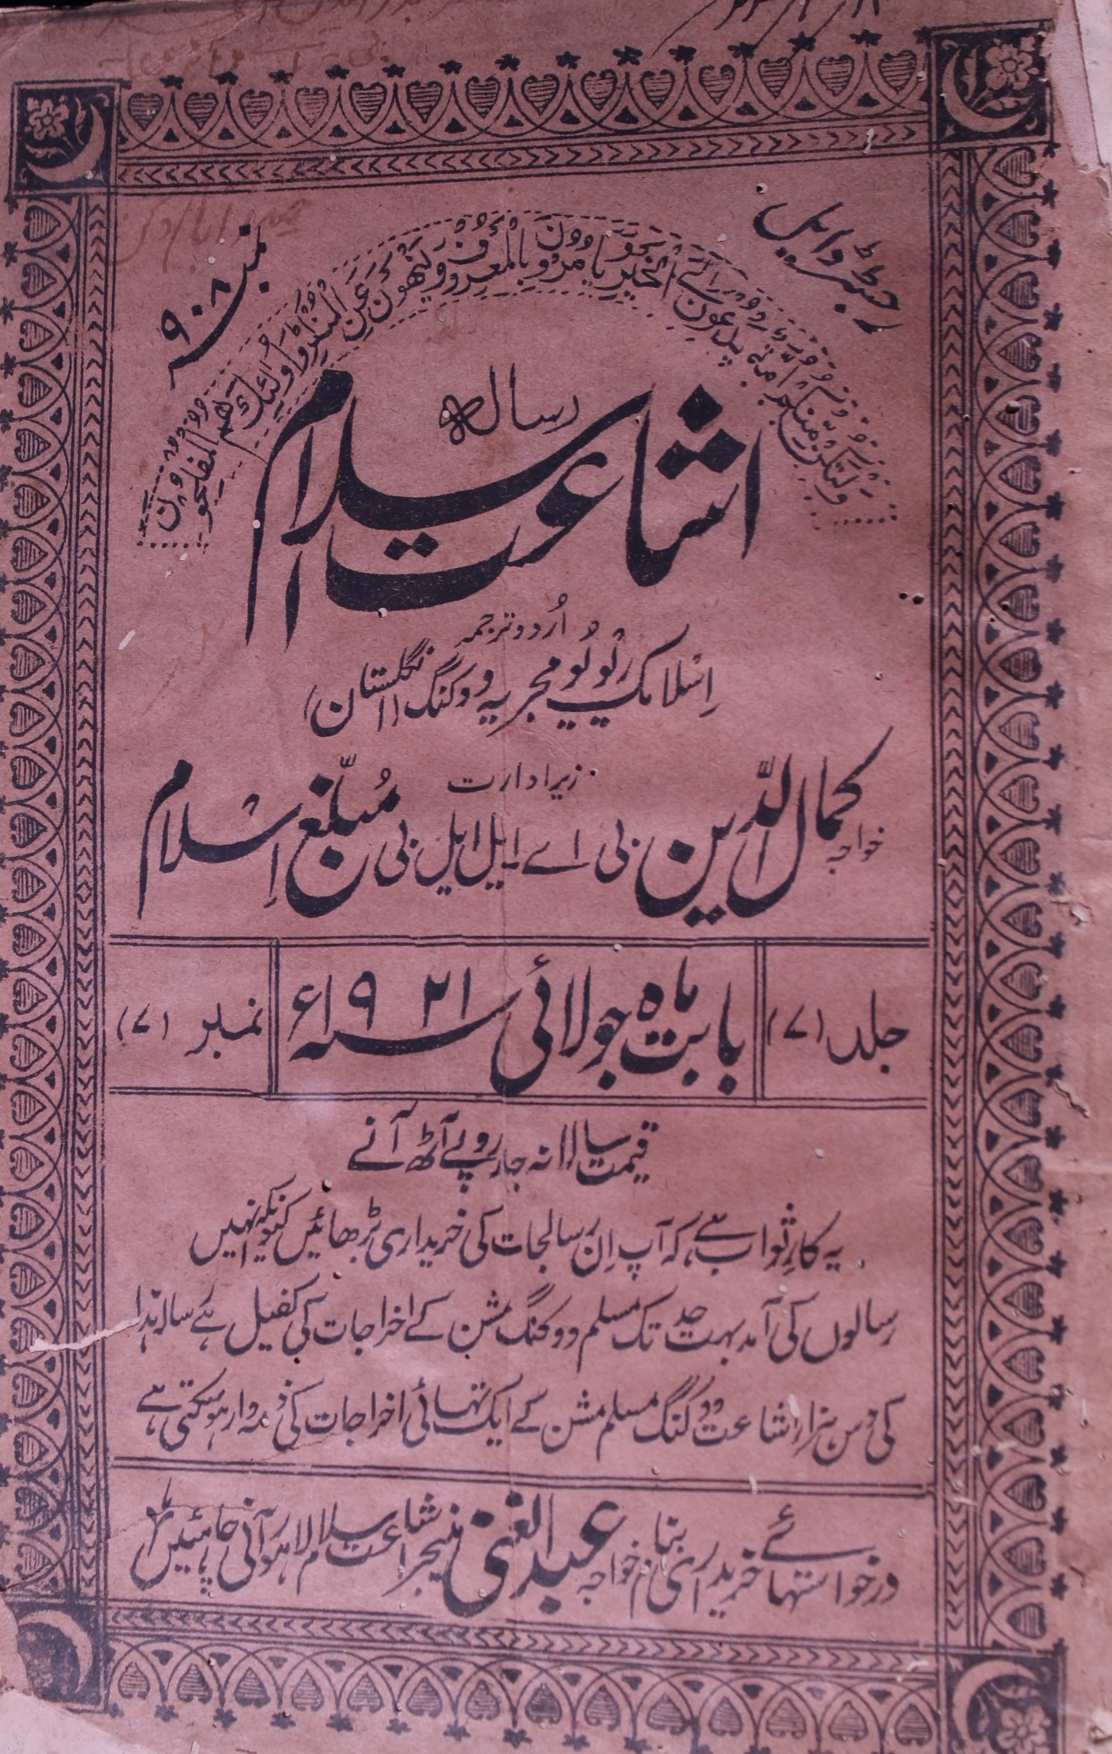 رجسٹرڈ ایل
نمبر ۹۰۸
وَلْتَكُنْ مِنْكُمْ اُمَّةٌ يَدْعُونَ اِلَى الْخَيْرِ وَيَأْمُرُونَ بِالْمَعْرُوفِ وَيَنْهَوْنَ عَنِ الْمُنْكَرِ وَاُولٰئِكَ هُمُ الْمُفْلِحُونَ
رسالہ
اشاعت اسلام
اُردو ترجمہ
اِسْلامک ریویو مجریہ ووکنگ (انگلستان)
زیر ادارت
خواجہ کمال الدّین بی اے ایل ایل بی مُبلّغ اِسْلام
جلد (۷)
بابت ماہ جولائی سنہ ۱۹۲۱ء
نمبر (۷)
قیمت سالانہ چار روپے آٹھ آنے
یہ کارِ ثواب ہے کہ آپ اِن رسالجات کی خریداری بڑھائیں کیونکہ انہیں
رسالوں کی آمد بہت حد تک مسلم ووکنگ مشن کے اخراجات کی کفیل ہے رسالہ ہذا
کی دس ہزار اشاعت ووکنگ مسلم مشن کے ایک تہائی اخراجات کی ذمہ دار ہوسکتی ہے
درخواستہائے خریداری بنام خواجہ عبد الغنی منیجر اشاعت اسلام لاہور آنی چاہئیں